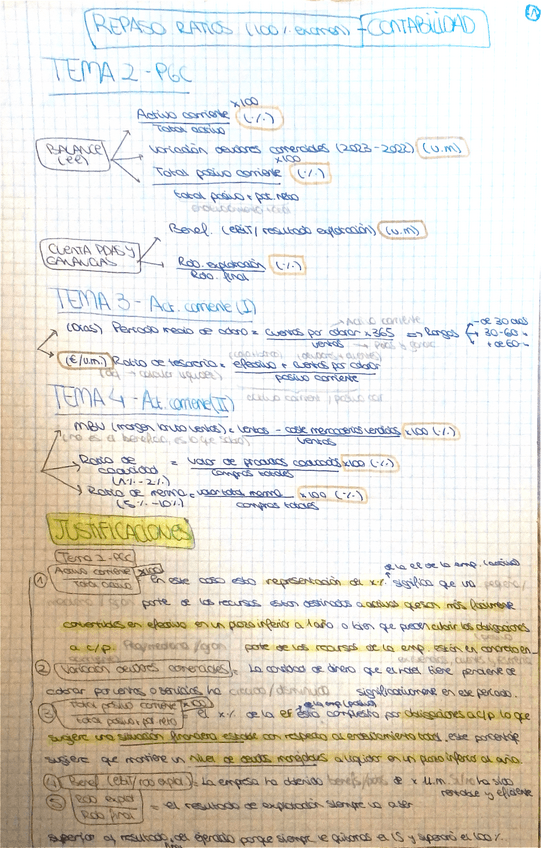 REPASO RATIOS (100% examen) - CONTABILIDAD
TEMA 2 - PGC
Activo corriente x100 (%)
Total activo
BALANCE
Variación deudores comerciales (2023-2022) (u.m)
Total pasivo corriente x100 (%)
total pasivo + pat. neto
Benef. (EBIT/ resultado explotación) (u.m)
CUENTA PDAS Y
GANANCIAS
Rdo. explotación (%)
Rdo. final
TEMA 3 - Act. corriente (I)
(Días) Periodo medio de cobro = cuentas por cobrar x365 => Rangos
ventas
- de 30 días
30-60
+ de 60
(€/u.m.) Ratio de tesorería = efectivo + cuentas por cobrar
pasivo corriente
TEMA 4 - Act. corriente (II)
MBV (margen bruto ventas) = ventas - coste mercaderías vendidas x100 (%)
ventas
(no es el beneficio, es lo que
Ratio de caducidad = valor de productos caducados x100 (%)
(1% - 2%) compras totales
Ratio de merma = valor total merma x100 (%)
(5% - 10%) compras totales
JUSTIFICACIONES
Tema 2 - PGC
① Activo corriente x100
Total activo
En este caso esta representación del x% significa que una
parte de los recursos están destinados a activos que son más fácilmente
convertidos en efectivo en un plazo inferior al año o bien que pueden cubrir las obligaciones
a c/p. parte de los recursos de la emp. están en
② Variación deudores comerciales = La cantidad de dinero que el hotel tiene pendiente de
cobrar por ventas o servicios ha significativamente en ese periodo.
③ Total pasivo corriente x100
Total pasivo + pat. neto
= el x% de la EF está compuesto por obligaciones a c/p lo que
sugiere una situación financiera estable con respecto al endeudamiento total, ese porcentaje
sugiere que mantiene un nivel de deudas a liquidar en un plazo inferior al año.
④ Benef (EBIT/ rdo explot.) = La empresa ha obtenido de x u.m. ha sido
rentable y eficiente
⑤ Rdo explot
Rdo final
= el resultado de explotación siempre va a ser
superior al resultado del ejercicio porque siempre le quitamos el IS y superará el 100%.